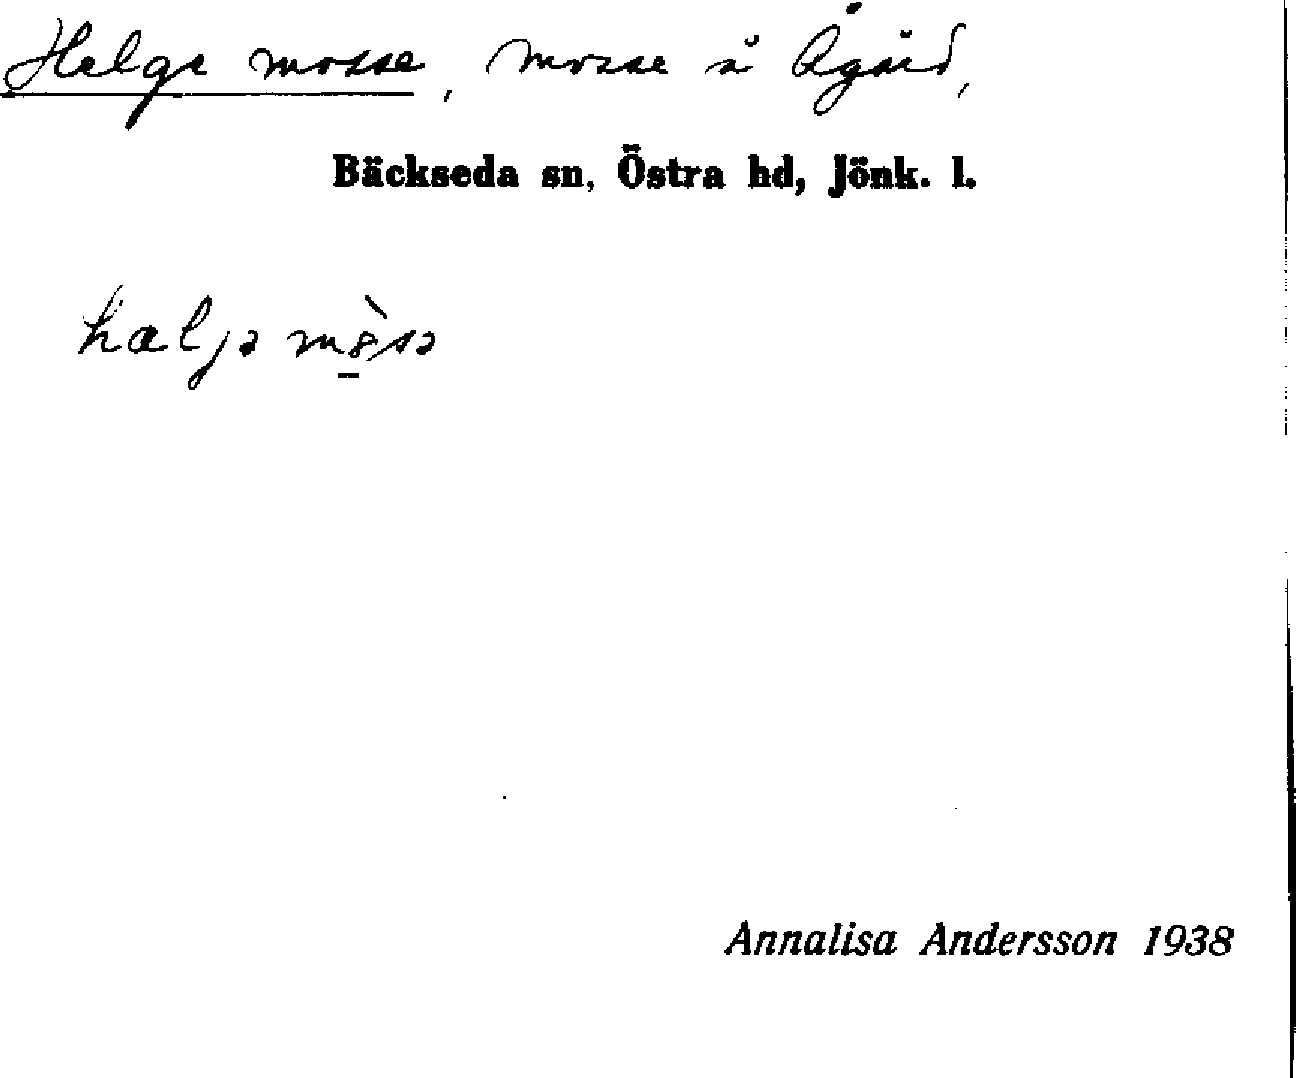 Helge mosse, mosse å Ågård,
Bäckseda sn, Östra hd, Jönk. l.
hæljə
Annalisa Andersson 1938